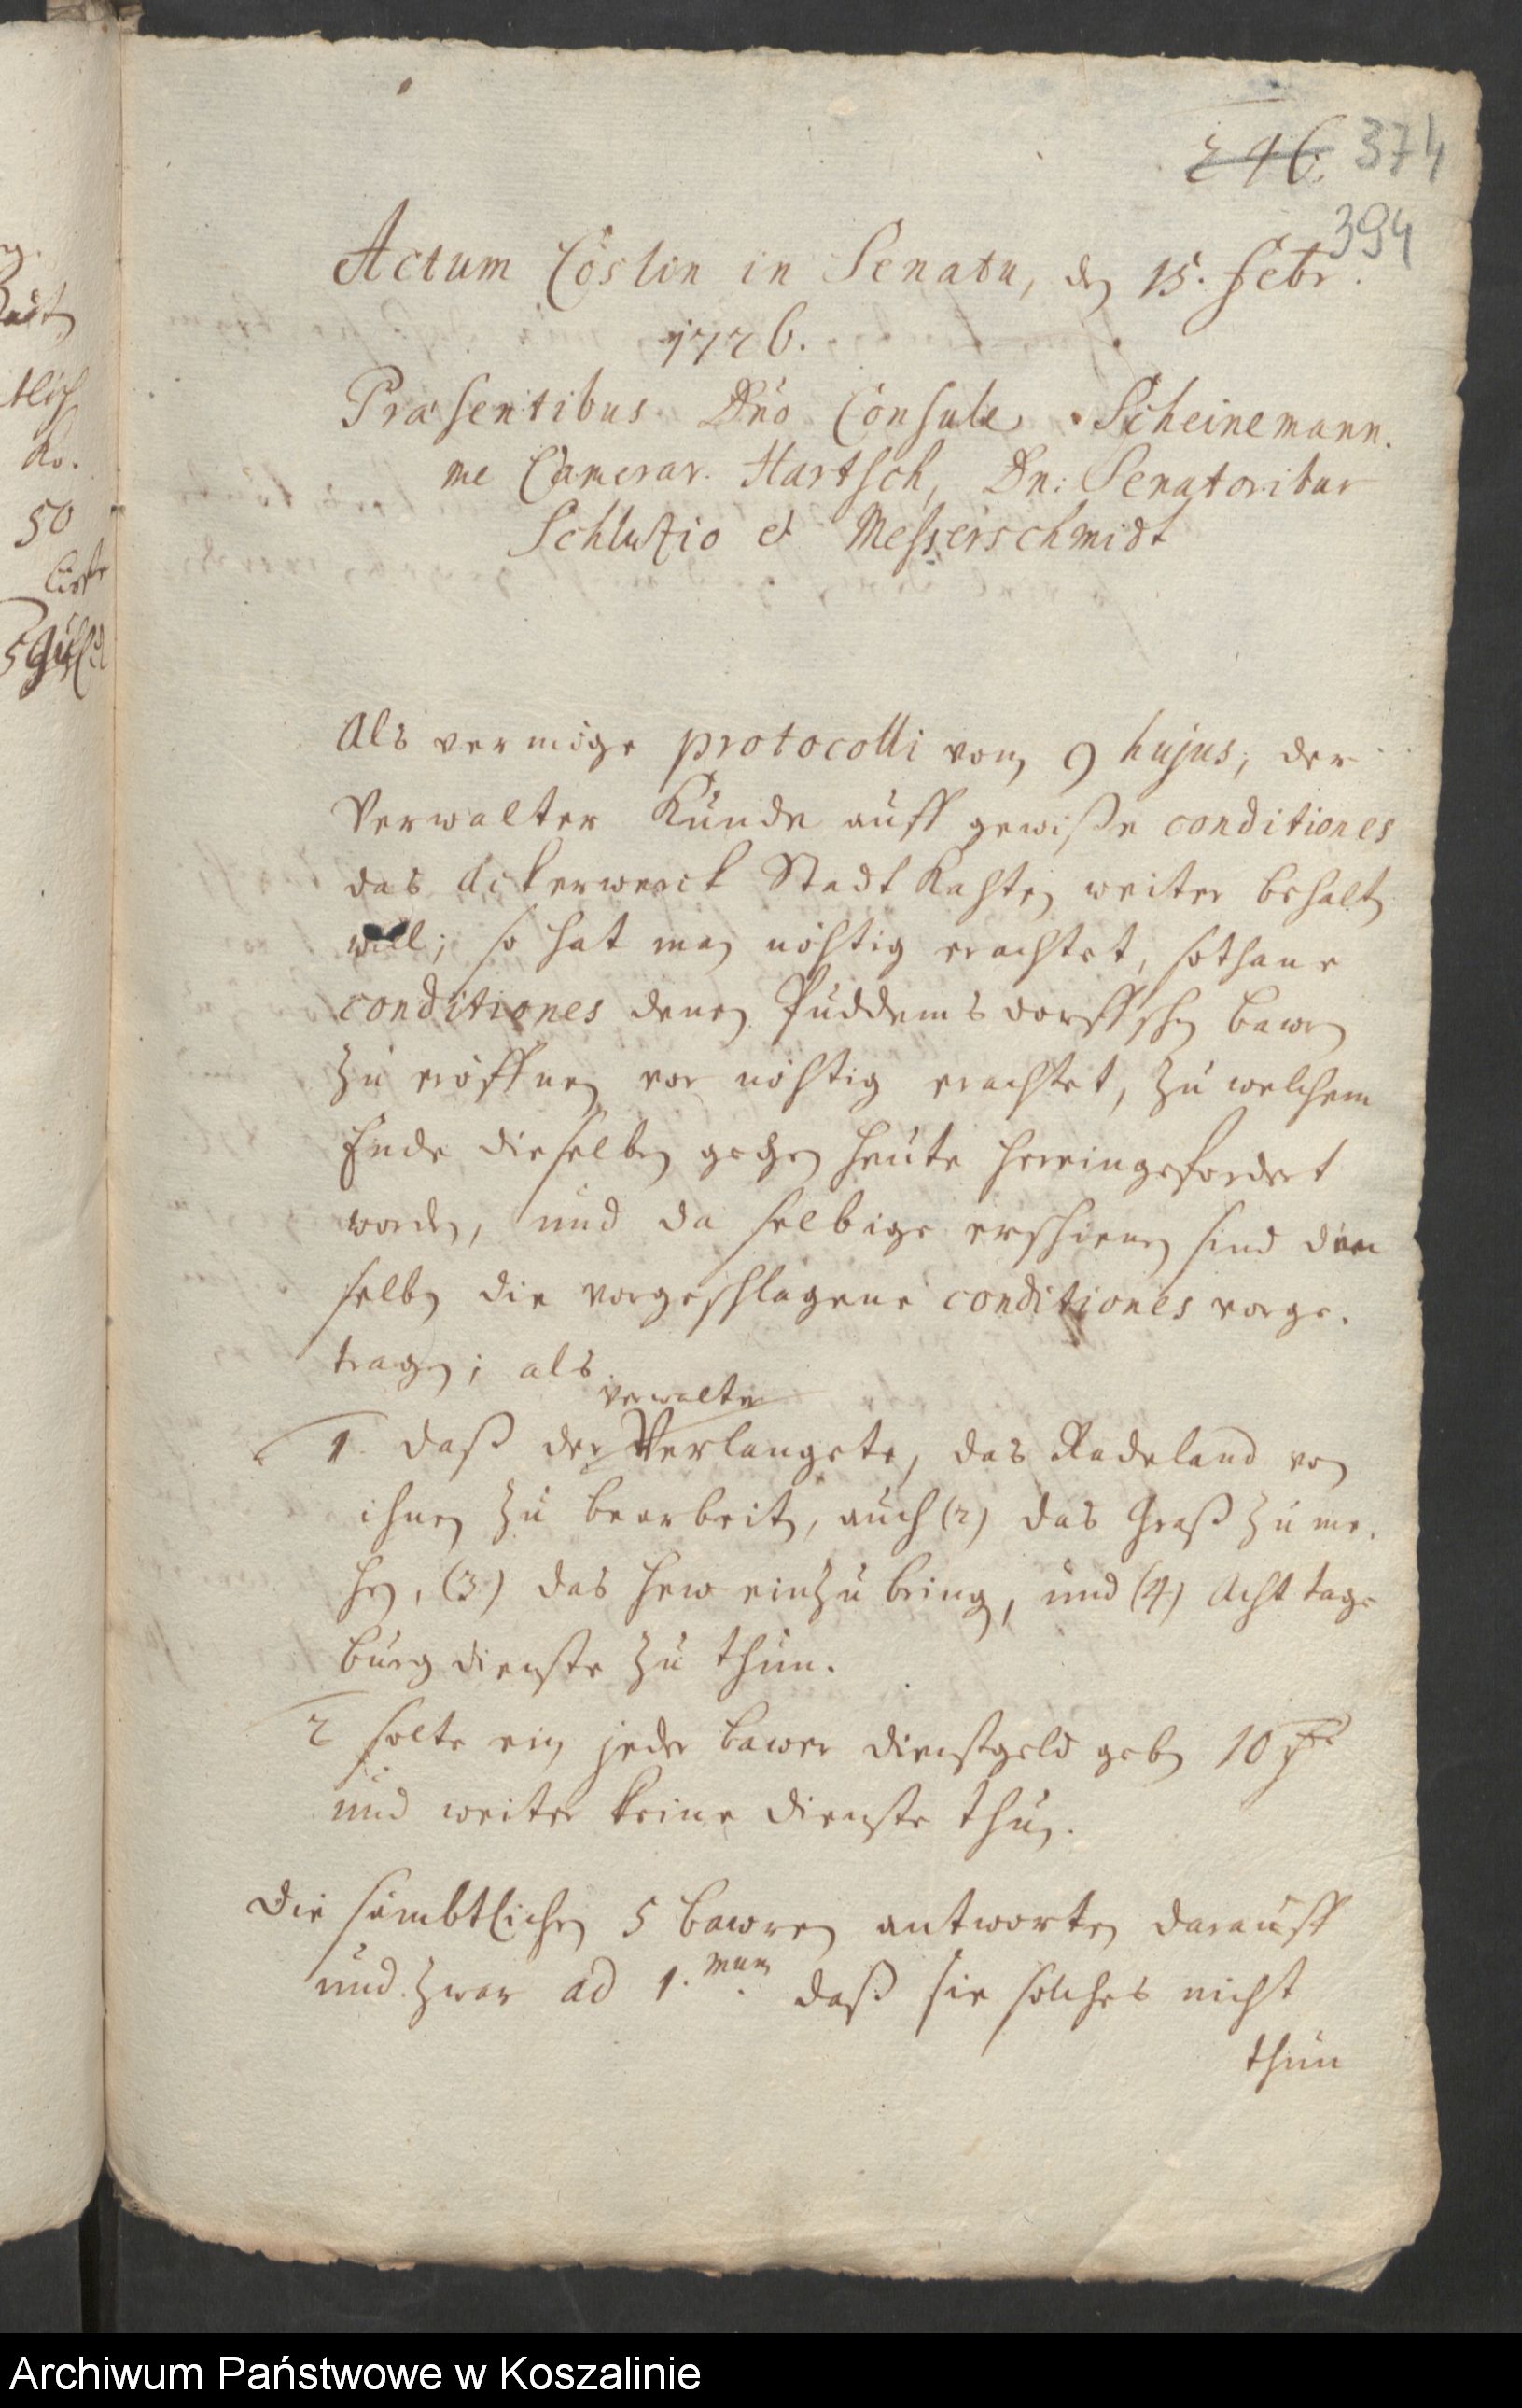 246. 374
394
Actum Cöslin in Senatu, den 15. Febr.
1726.
Præsentibus Dno Consule Scheinemann.
me Camerar. Hartsch, Dn: Senatoribus
Schlutio et Messerschmidt
Als vermöge protocolli vom 9 hujus, der
Verwalter Kunde auff gewiße conditiones
das Ackerwerck Stadt Kahten weiter behalten
will; so hat man nöhtig erachtet, sothane
conditiones denen Puddemsdorffschen bawren
zu eröffnen vor nöhtig erachtet, zu welchem
Ende dieselben gegen heute hereingefordert
worden, und da selbige erschienen sind den
selben die vorgeschlagene conditiones vorge-
tragen; als
Verwalter
1. daß der Verlangete, das Radeland von
ihnen zu bearbeiten, auch (2) das Graß zu me-
hen, (3) das hew einzubringen, und (4) Acht tage
burgdienste zu thun.
2 solte ein jeder bawer dienstgeld geben 10
und weiter keine dienste thun.
Die sämbtlichen 5 bawren antworten darauff
und zwar ad 1.mum daß sie solches nicht
thun
50
Archiwum Państwowe w Koszalinie